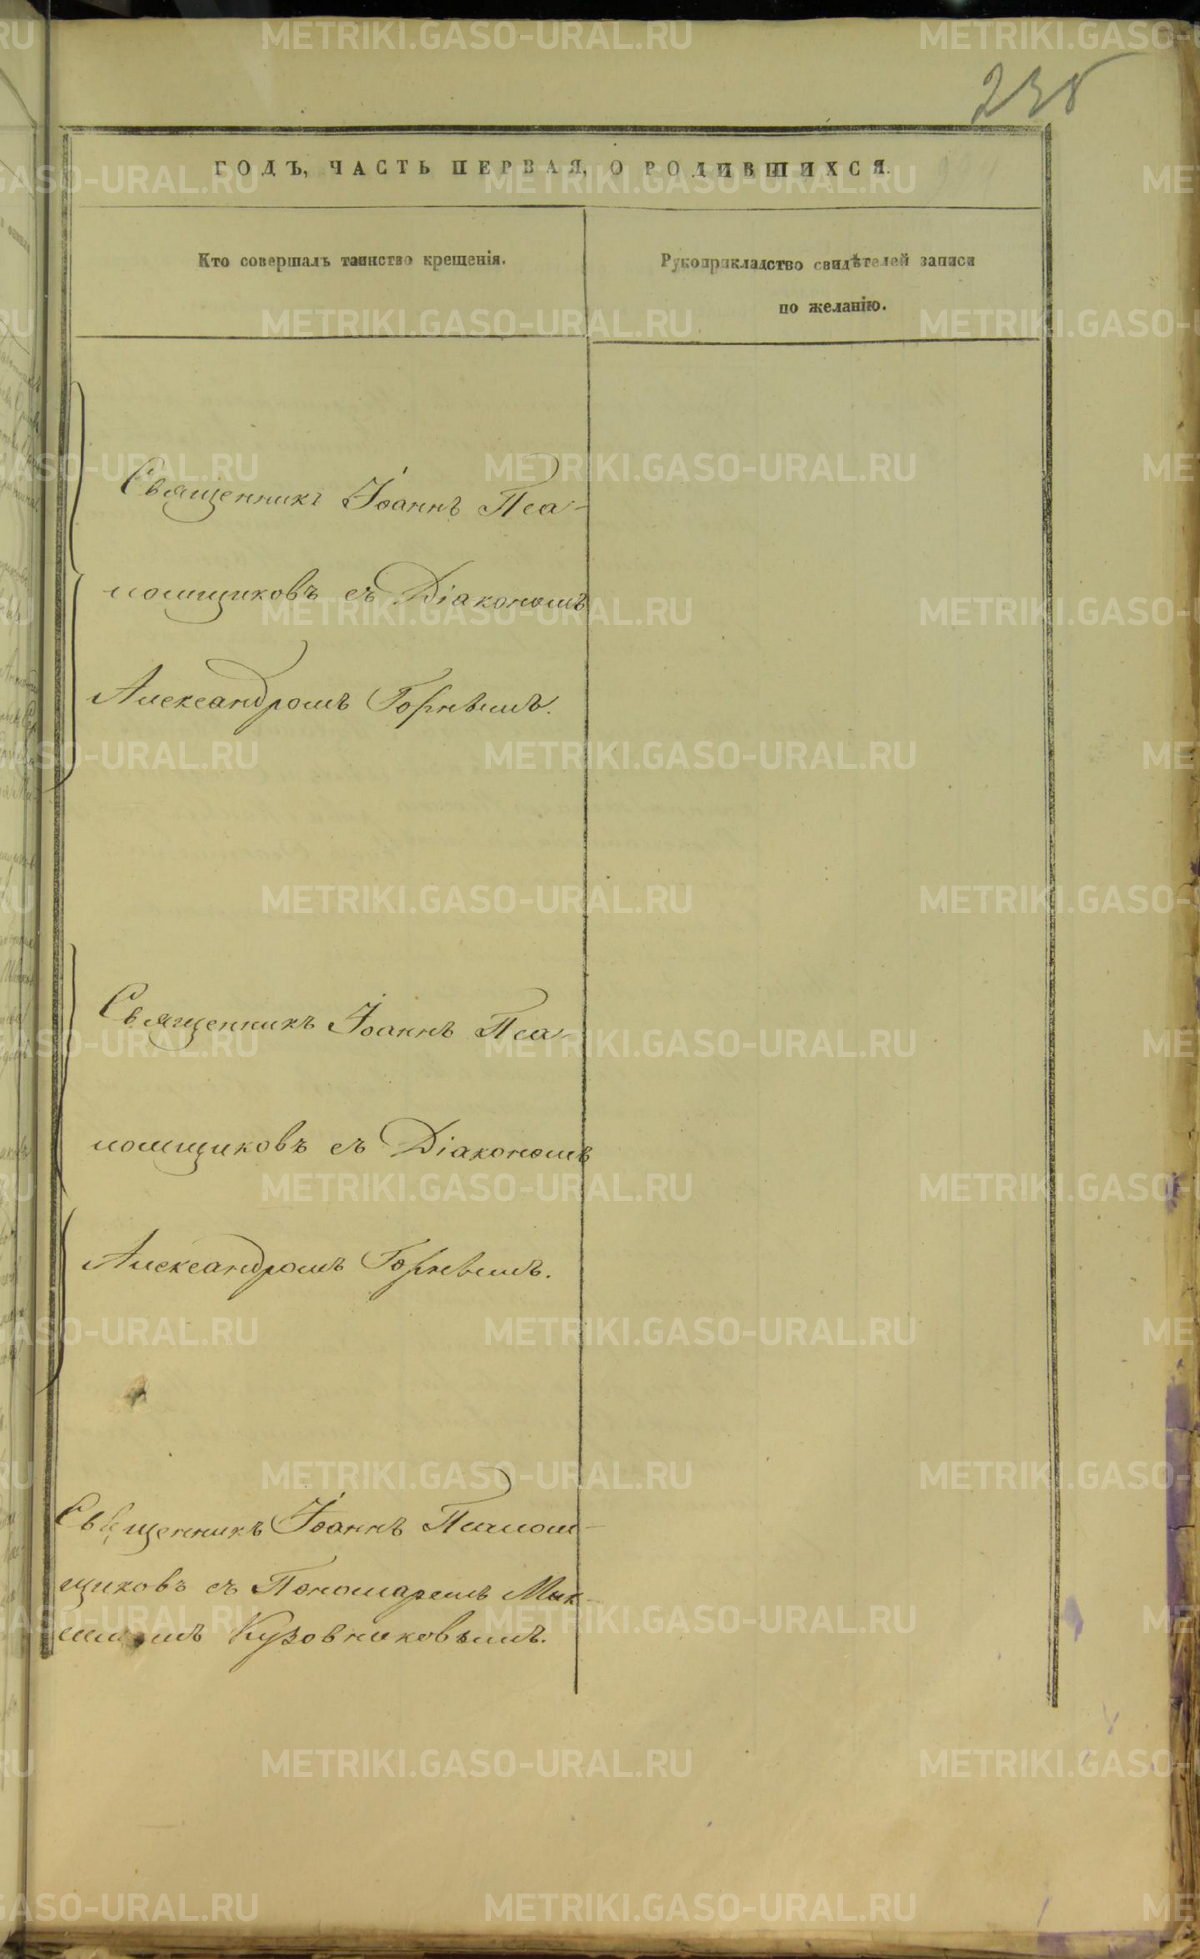 238
ГОДЪ, ЧАСТЬ ПЕРВАЯ, О РОДИВШИХСЯ.
Кто совершалъ таинство крещенія.
Рукоприкладство свидѣтелей записи
по желанію.
Священникъ Іоаннъ Пса-
ломщиковъ съ Діакономъ
Александромъ Горнымъ.
Священникъ Іоаннъ Пса-
ломщиковъ съ Діакономъ
Александромъ Горнымъ.
Священникъ Іоаннъ Псалом-
щиковъ съ Пономаремъ
Кузовниковымъ.
METRIKI.GASO-URAL.RU